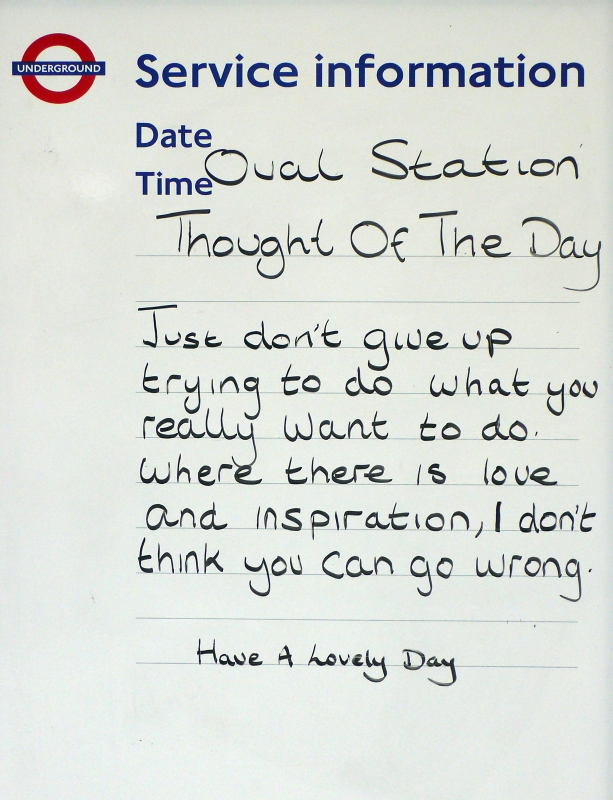 UNDERGROUND
Service information
Date
Time
Oval Station
Thought Of The Day
Just don't give up
trying to do what you
really want to do.
Where there is love
and inspiration, I don't
think you can go wrong.
Have A Lovely Day